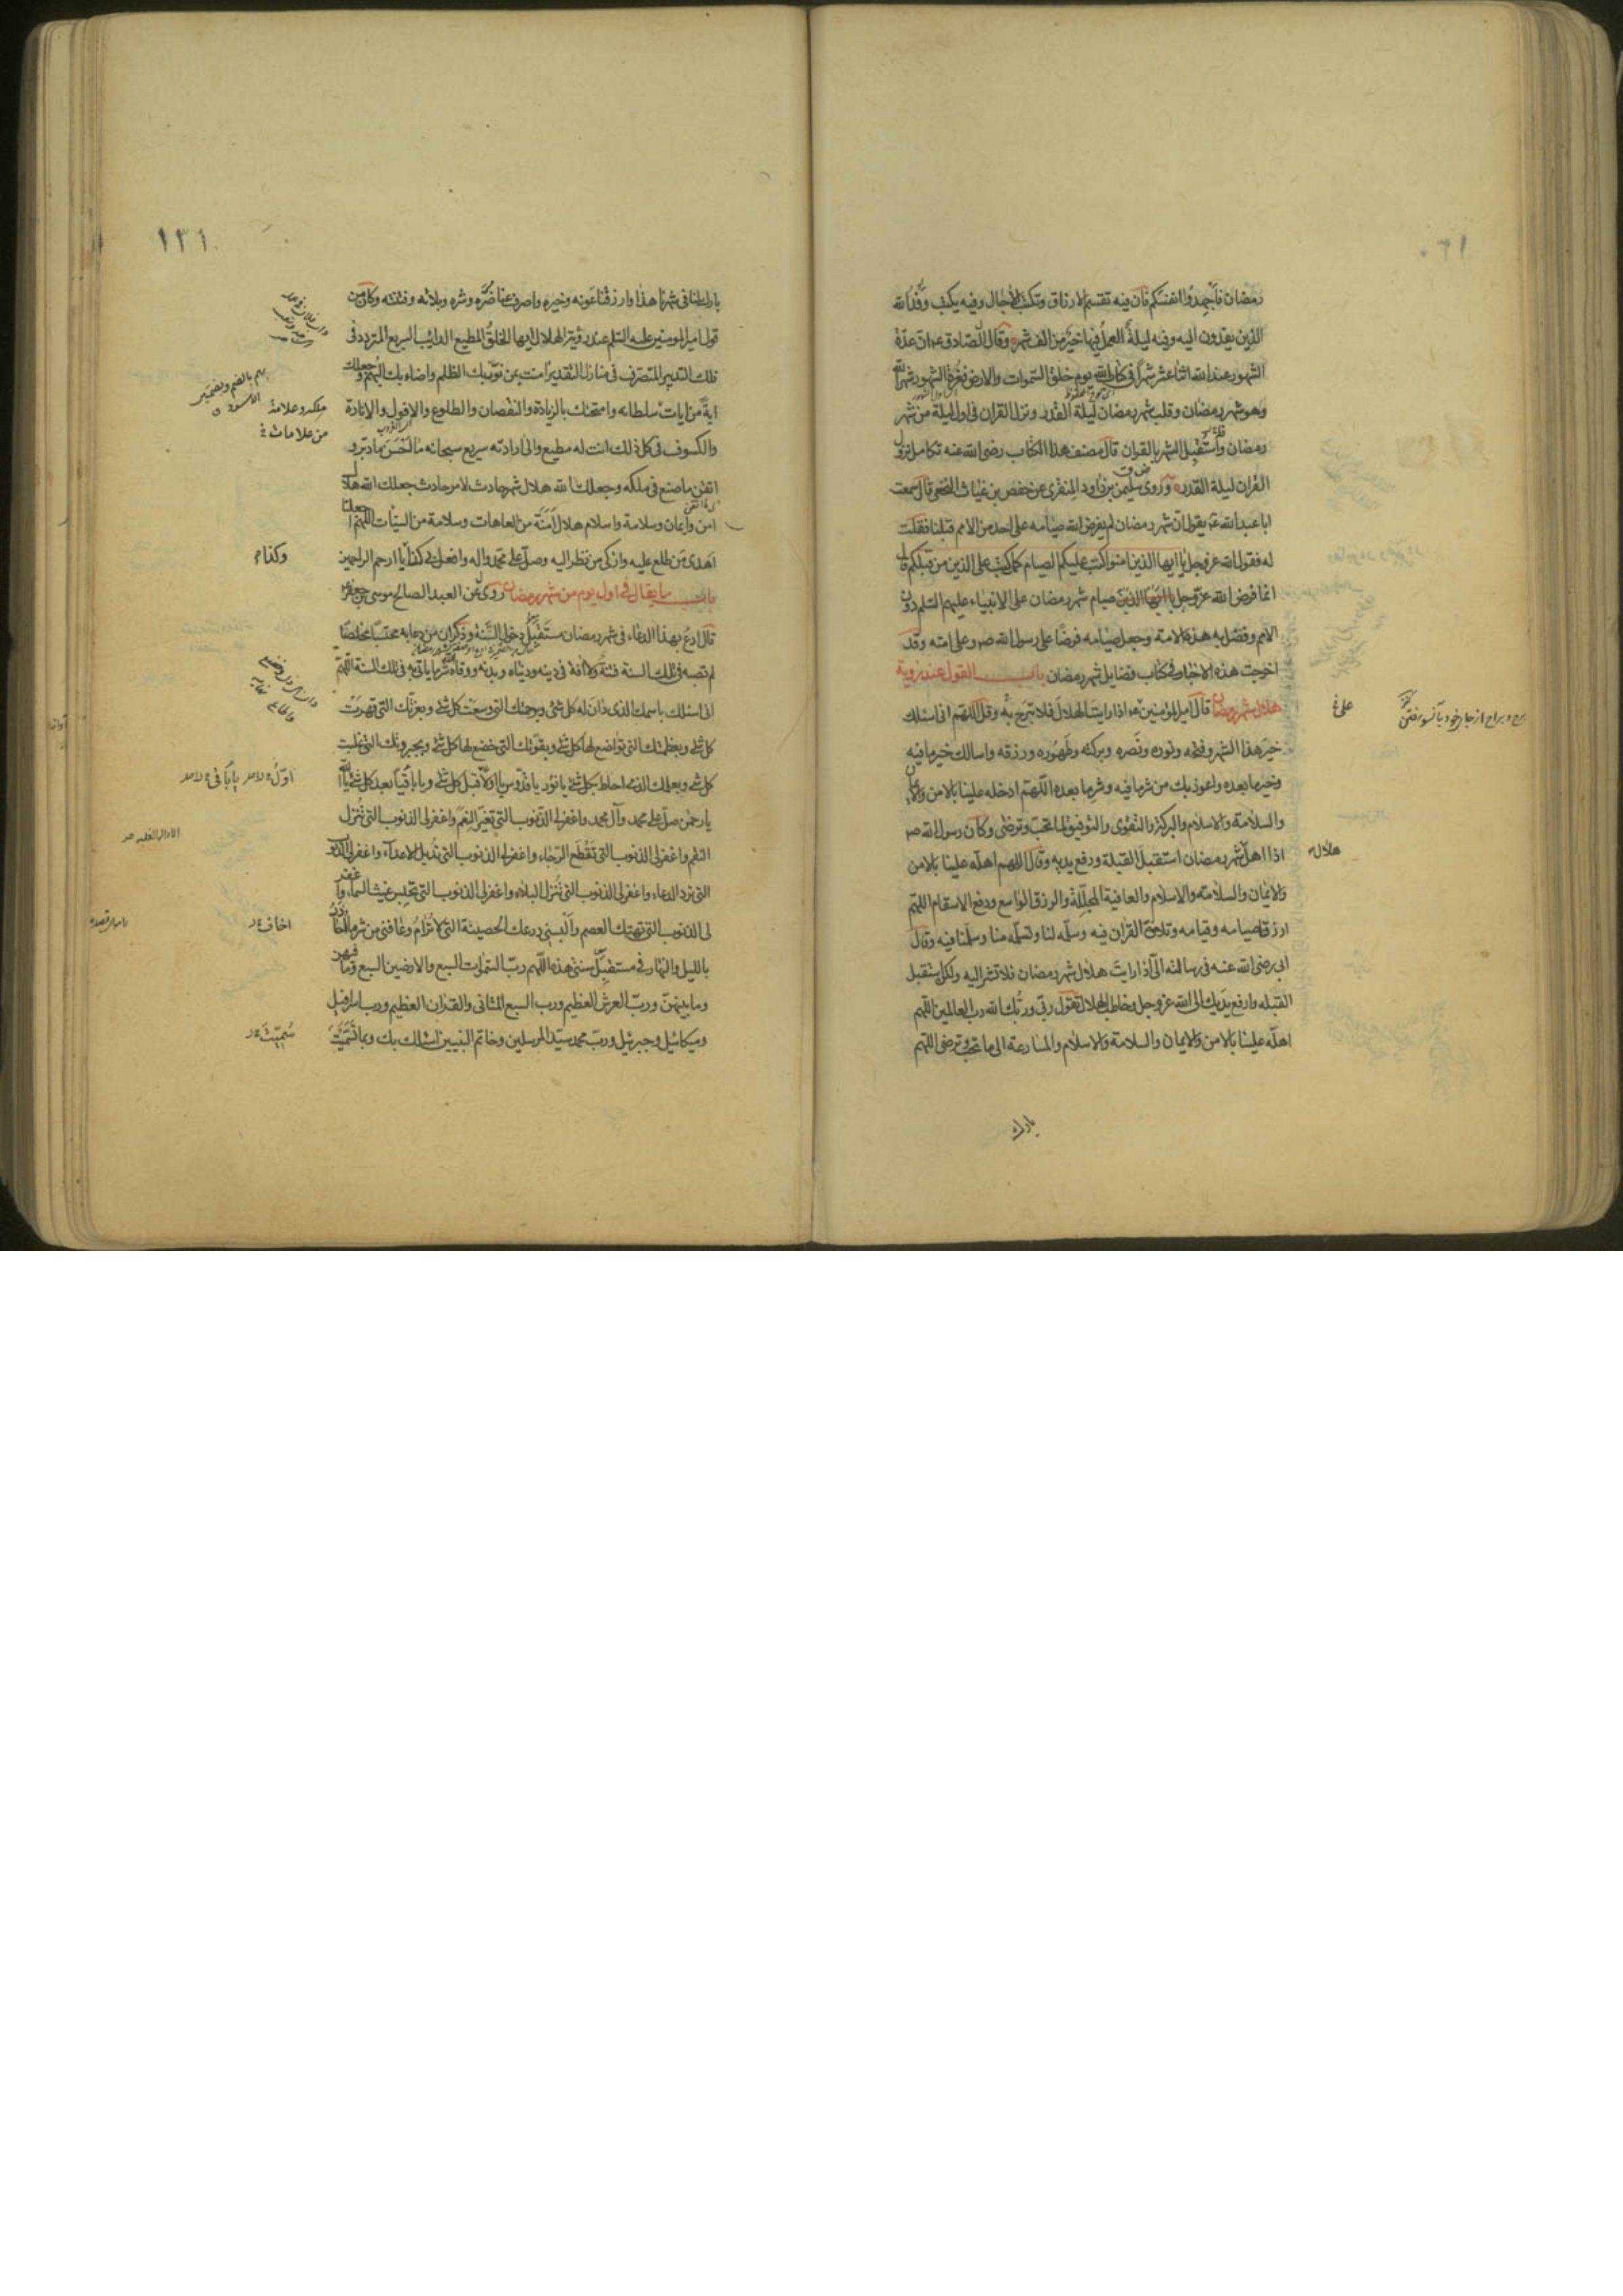 رمضان فاجهدوا انفسكم فان فيه تقسم الارزاق وتكتب الاجال وفيه يكتب وفد الله
الذين يفدون اليه وفيه ليلة العمل فيها خير من الف شهر وقال الصادق ع ان عدة
الشهور عند الله اثنا عشر شهرا في كتاب الله يوم خلق السموات والارض فغرة الشهور شهر الله
وهو شهر رمضان وقلب شهر رمضان ليلة القدر ونزل القران في اول ليلة من شهر
رمضان واستقبل الشهر بالقران قال مصنف هذا الكتاب رضى الله عنه تكامل نزول
القران ليلة القدر وروى سليمن بن داود المنقرى عن حفص بن غياث النخعى قال سمعت
ابا عبد الله ع يقول ان شهر رمضان لم يفرض الله صيامه على احد من الامم قبلنا فقلت
له فقول الله عز وجل يا ايها الذين امنوا كتب عليكم الصيام كما كتب على الذين من قبلكم قال
انما فرض الله عز وجل صيام شهر رمضان على الانبياء عليهم السلم دون
الامم وفضل به هذه الامة وجعل صيامه فرضا على رسول الله ص وعلى امته وقد
اخرجت هذه الاخبار في كتاب فضايل شهر رمضان باب القول عند رؤية
هلال شهر رمضان قال امير المؤمنين ع اذا رايت الهلال فلا تبرح به وقل اللهم انى اسئلك
خير هذا الشهر وفتحه ونوره ونصره وبركته وطهوره ورزقه واسالك خير ما فيه
وخير ما بعده واعوذ بك من شر ما فيه وشر ما بعده اللهم ادخله علينا بالامن والايمان
والسلامة والاسلام والبركة والتقوى والتوفيق لما تحب وترضى وكان رسول الله ص
اذا اهل شهر رمضان استقبل القبلة ورفع يديه وقال اللهم اهله علينا بالامن
والايمان والسلامة والاسلام والعافية المجللة والرزق الواسع ودفع الاسقام اللهم
ارزقنا صيامه وقيامه وتلاوة القران فيه وسلمه لنا وتسلمه منا وسلمنا فيه وقال
ابى رضى الله عنه في رسالته الى اذا رايت هلال شهر رمضان فلا تشر اليه ولكن استقبل
القبله وارفع يديك الى الله عز وجل وخاطب الهلال تقول ربى وربك الله رب العالمين اللهم
اهله علينا بالامن والايمان والسلامة والاسلام والمسارعة الى ما تحب وترضى اللهم
على
هلال
بارك
١٣١
بارك لنا في شهرنا هذا وارزقنا عونه وخيره واصرف عنا ضره وشره وبلائه وفتنته وكان من
قول امير المومنين عليه السلم عند رؤية الهلال ايها الخلق المطيع الدائب السريع المتردد في
فلك التدبير المتصرف في منازل التقدير امنت بمن نور بك الظلم واضاء بك البهم وجعلك
اية من ايات سلطانه وامتحنك بالزيادة والنقصان والطلوع والافول والانارة
والكسوف في كل ذلك انت له مطيع والى ارادته سريع سبحانه ما احسن ما دبر و
اتقن ما صنع في ملكه وجعلك الله هلال شهر حادث لامر حادث جعلك الله هلال
امن وايمان وسلامة واسلام هلال امنة من العاهات وسلامة من السيئات اللهم اجعلنا
اهدى من طلع عليه وازكى من نظر اليه وصل على محمد واله وافعل بى كذا يا ارحم الراحمين
باب ما يقال في اول يوم من شهر رمضان روى عن العبد الصالح موسى بن جعفر
قال ادع بهذا الدعاء في شهر رمضان مستقبل دخول السنة وذكر ان من دعا به محتسبا مخلصا
لم تصبه في تلك السنة فتنة ولا افة في دينه ودنياه وبدنه ووقاه شر ما ياتى به في تلك السنة اللهم
انى اسئلك باسمك الذى دان له كل شئ وبرحمتك التى وسعت كل شئ وبعزتك التى قهرت
كل شئ وبعظمتك التى تواضع لها كل شئ وبقوتك التى خضع لها كل شئ وبجبروتك التى غلبت
كل شئ وبعلمك الذى احاط بكل شئ يا نور يا قدوس يا اولا قبل كل شئ ويا باقيا بعد كل شئ يا الله
يا رحمن صل على محمد وآل محمد واغفر لى الذنوب التى تغير النعم واغفر لى الذنوب التى تنزل
النقم واغفر لى الذنوب التى تقطع الرجاء واغفر لى الذنوب التى تديل الاعداء واغفر لى الذنوب
التى ترد الدعاء واغفر لى الذنوب التى تنزل البلاء واغفر لى الذنوب التى تحبس غيث السماء واغفر
لى الذنوب التى تهتك العصم والبسنى درعك الحصينة التى لا ترام وعافنى من شر ما احاذر
بالليل والنهار في مستقبل سنتى هذه اللهم رب السموات السبع والارضين السبع وما فيهن
وما بينهن ورب العرش العظيم ورب السبع المثانى والقران العظيم ورب اسرافيل
وميكائيل وجبرئيل ورب محمد سيد المرسلين وخاتم النبيين اسئلك بك وبما تسميت
من علامات
وكذا
اخاف
سميت